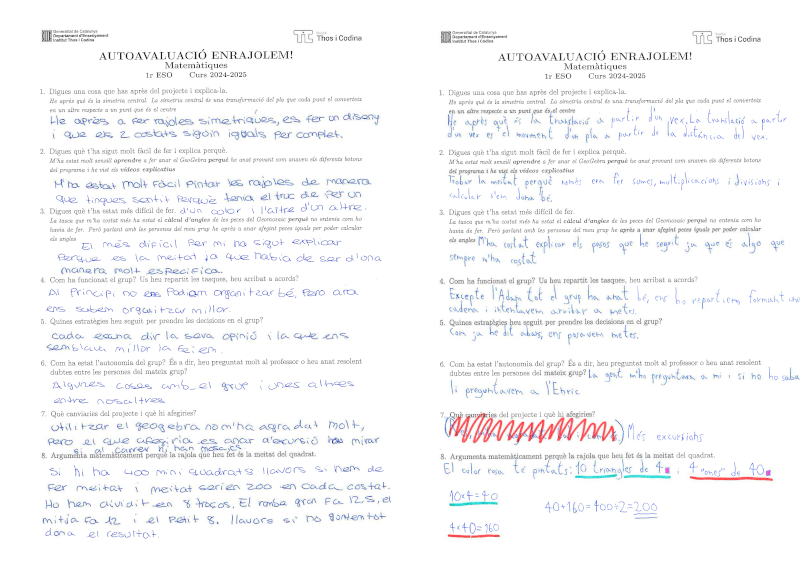 Generalitat de Catalunya
Departament d'Ensenyament
Institut Thos i Codina
Thos i Codina
AUTOAVALUACIÓ ENRAJOLEM!
Matemàtiques
1r ESO Curs 2024-2025
1. Digues una cosa que has après del projecte i explica-la.
He après què és la simetria central. La simetria central és una transformació del pla que cada punt el converteix
en un altre respecte a un punt que és el centre
He après a fer rajoles simetriques, es fer un diseny
i que els 2 costats siguin iguals per complet.
2. Digues què t'ha sigut molt fàcil de fer i explica perquè.
M'ha estat molt senzill aprendre a fer anar el GeoGebra perquè he anat provant com anaven els diferents botons
del programa i he vist els vídeos explicatius
M'ha estat molt fàcil pintar les rajoles de manera
que tingues sentit perquè tenia el truc de fer un
d'un color i l'altre d'un altre.
3. Digues què t'ha estat més difícil de fer.
La tasca que m'ha costat més ha estat el càlcul d'angles de les peces del Geomosaic perquè no entenia com ho
havia de fer. Però parlant amb les persones del meu grup he après a anar afegint peces iguals per poder calcular
els angles
El més dificil per mi ha sigut explicar
perque es la meitat ja que habia de ser d'una
manera molt especifica.
4. Com ha funcionat el grup? Us heu repartit les tasques, heu arribat a acords?
Al principi no ens podiam organitzar bé, pero ara
ens sabem organitzar millor.
5. Quines estratègies heu seguit per prendre les decisions en el grup?
cada escuna dir la seva opinió i la que ens
semblava millor la feiem.
6. Com ha estat l'autonomia del grup? És a dir, heu preguntat molt al professor o heu anat resolent
dubtes entre les persones del mateix grup?
Algunes coses amb el grup i unes altres
entre nosaltres
7. Què canviaries del projecte i què hi afegiries?
utilitzar el geogebra no m'ha agradat molt,
pero el que afegiria es anar d'excursió mirar
si al carrer hi han mosaics
8. Argumenta matemàticament perquè la rajola que heu fet és la meitat del quadrat.
Si hi ha 400 mini quadrats llavors si hem de
fer meitat i meitat serien 200 en cada costat.
Ho hem dividit en 8 troços. El rombe gran fa 12,5, el
mitja fa 12 i el petit 8. llavors si ho tot
dona el resultat.
Generalitat de Catalunya
Departament d'Ensenyament
Institut Thos i Codina
Thos i Codina
AUTOAVALUACIÓ ENRAJOLEM!
Matemàtiques
1r ESO Curs 2024-2025
1. Digues una cosa que has après del projecte i explica-la.
He après què és la simetria central. La simetria central és una transformació del pla que cada punt el converteix
en un altre respecte a un punt que és el centre
He après què és la translació a partir d'un vex. La translació a partir
d'un vex és el moviment d'un pla a partir de la distáncia del vex.
2. Digues què t'ha sigut molt fàcil de fer i explica perquè.
M'ha estat molt senzill aprendre a fer anar el GeoGebra perquè he anat provant com anaven els diferents botons
del programa i he vist els vídeos explicatius
Trobar la meitat perquè només era fer sumes, multiplicacions i divisions i
calcular s'em dona bé.
3. Digues què t'ha estat més difícil de fer.
La tasca que m'ha costat més ha estat el càlcul d'angles de les peces del Geomosaic perquè no entenia com ho
havia de fer. Però parlant amb les persones del meu grup he après a anar afegint peces iguals per poder calcular
els angles
M'ha costat explicar els pasos que he seguit ja que és algo que
sempre m'ha costat
4. Com ha funcionat el grup? Us heu repartit les tasques, heu arribat a acords?
Excepte l'Adam tot el grup ha anat bé, ens ho repartiem formant una
cadena i intentavem arribar a metes.
5. Quines estratègies heu seguit per prendre les decisions en el grup?
Com ja he dit abans, ens posavem metes.
6. Com ha estat l'autonomia del grup? És a dir, heu preguntat molt al professor o heu anat resolent
dubtes entre les persones del mateix grup? La gent m'ho preguntava a mi i si no ho sabia
li preguntavem a l'Enric
7. Què canviaries del projecte i què hi afegiries?
Més excursions
8. Argumenta matemàticament perquè la rajola que heu fet és la meitat del quadrat.
El color rosa té pintats: 10 triangles de 4 i 4 "ones" de 40
10x4=40
40+160=400÷2=200
4x40=160